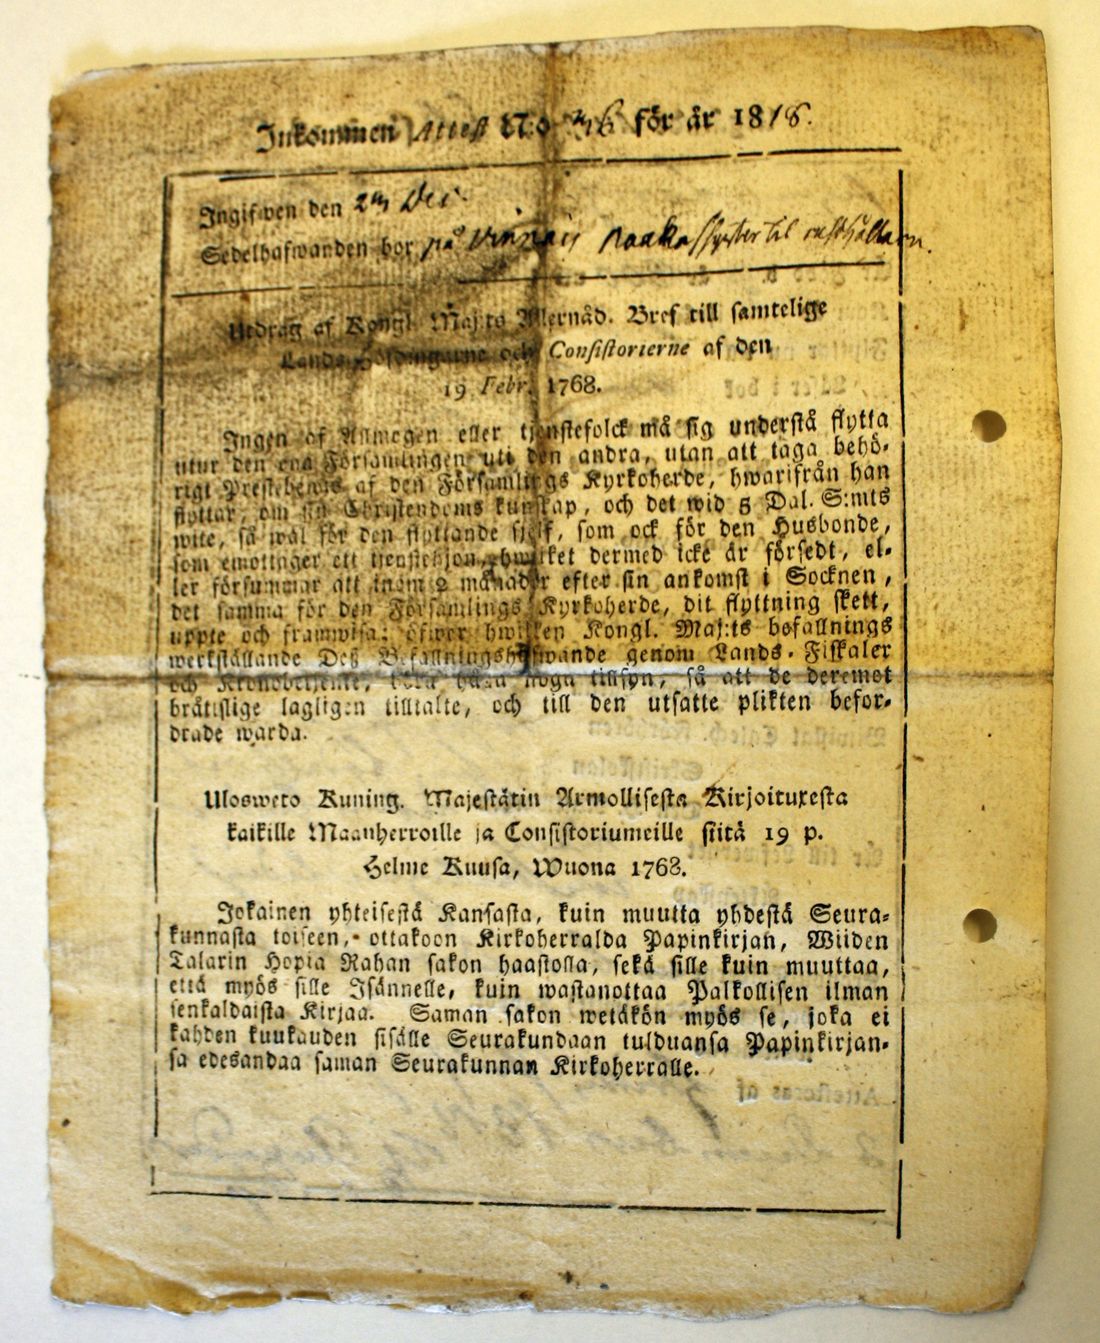 Inkommen Attest No 36 för år 1818.
Ingifwen den 2 Dec.
Sedelhafwanden bor på
Utdrag af Kongl. Maj:ts Allernåd. Bref till samtelige
Lands-Höfdingarne och Consistorierne af den
19 Febr. 1768.
Ingen af Allmogen eller tjenstefolck må sig understå flytta
utur den ena Församlingen uti den andra, utan att taga behö-
rigt Prestebewis af den Församlings Kyrkoherde, hwarifrån han
flyttar, om sin Christendoms kunskap, och det wid 5 Dal. S:mts
wite, så wäl för den flyttande sjelf, som ock för den Husbonde,
som emottager ett tienstehjon, hwilket dermed icke är försedt, el-
ler försummar att inom 2 månader efter sin ankomst i Socknen,
det samma för den Församlings Kyrkoherde, dit flyttning skett,
uppte och framwisa; öfwer hwilken Kongl. Maj:ts befallnings
werkställande Deß Befallningshafwande genom Lands-Fiskaler
och Kronobetjente, böra hafwa noga tillsyn, så att de deremot
bråtislige lagligen tilltalte, och till den utsatte plikten befor-
drade warda.
Ulosweto Kuning. Majestätin Armollisesta Kirjoituxesta
kaikille Maanherroille ja Consistoriumeille siitä 19 p.
Helme Kuusa, Wuona 1768.
Jokainen yhteisestä Kansasta, kuin muutta yhdestä Seura-
kunnasta toiseen, ottakoon Kirkoherralda Papinkirjan, Wiiden
Talarin Hopia Rahan sakon haastolla, sekä sille kuin muuttaa,
että myös sille Isännelle, kuin wastanottaa Palkollisen ilman
senkaldaista Kirjaa. Saman sakon wetäkön myös se, joka ei
kahden kuukauden sisälle Seurakundaan tulduansa Papinkirjan-
sa edesandaa saman Seurakunnan Kirkoherralle.